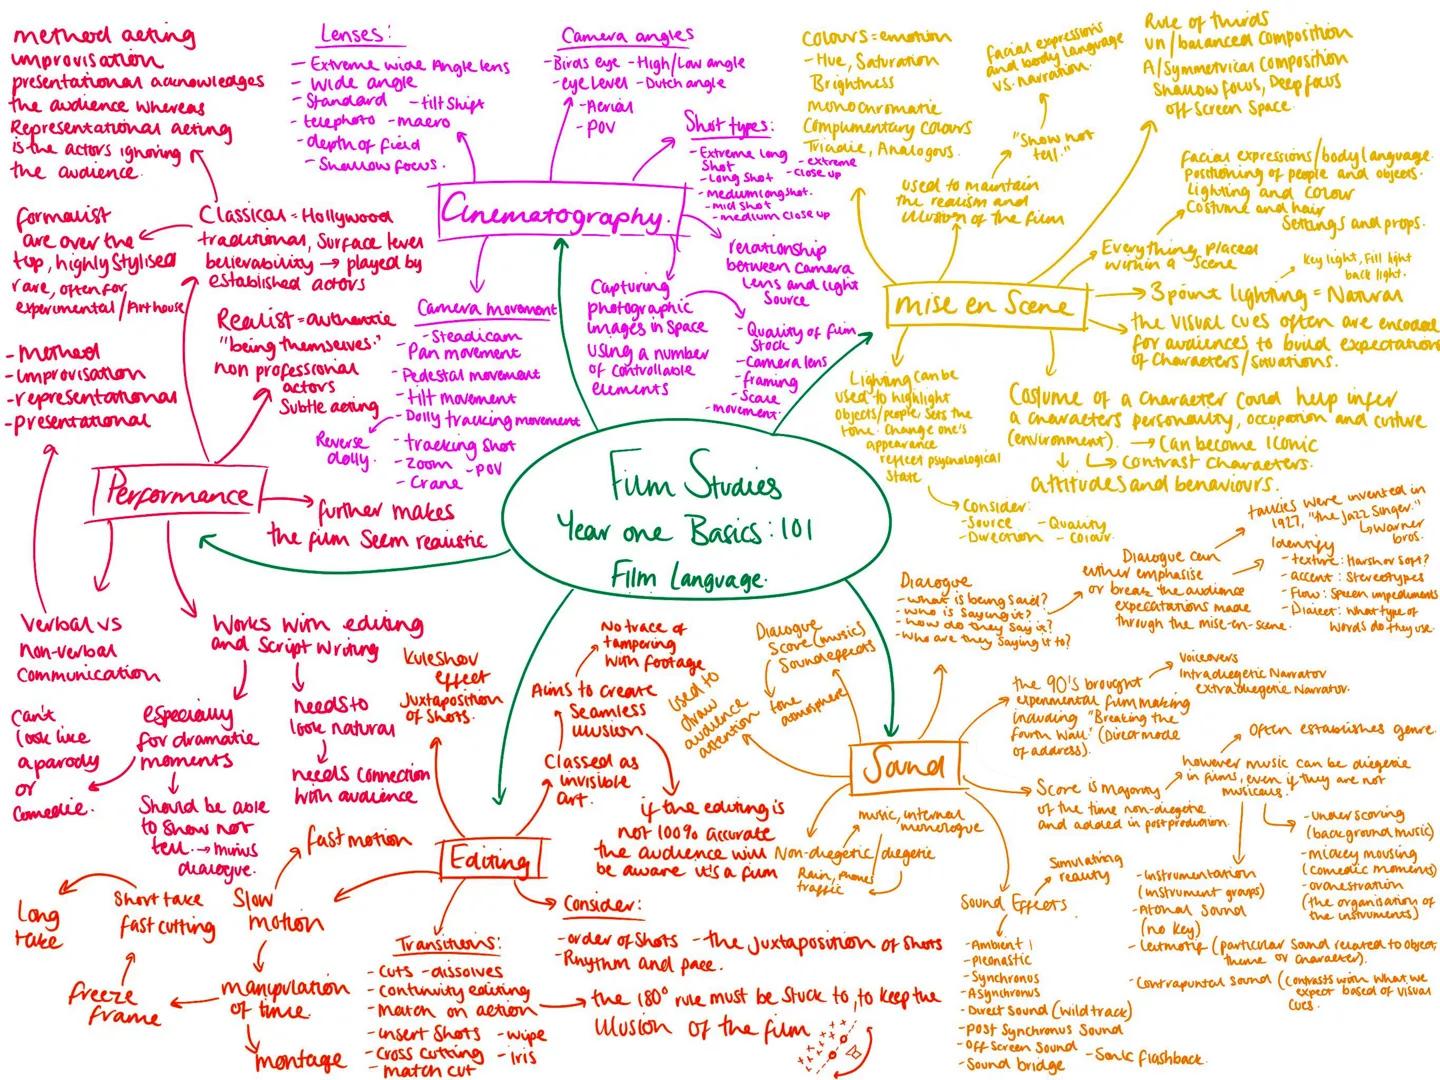 Film Studies
Year one Basics: 101
Film Language.
Cinematography.
Lenses:
- Extreme wide Angle lens
- Wide angle
- Standard - tilt Shift
- telephoto - macro
- depth of field
- Shallow focus.
Camera angles
- Birds eye - High/Low angle
- eye Level - Dutch angle
- Aerial
- POV
Shot types:
- Extreme long
Shot
- extreme
close up
- Long Shot
- medium long shot.
- mid shot
- medium close up
relationship
between camera
Lens and light
Source
Capturing
photographic
images in Space
using a number
of controllable
elements
- Quality of film
Stock
- Camera lens
- framing
- Scale
- movement.
Camera movement
- Steadicam
Pan movement
- Pedestal movement
- tilt movement
- Dolly tracking movement
Reverse
dolly.
- tracking shot
- zoom - POV
- Crane
mise en Scene
Colours = emotion
- Hue, Saturation
Brightness
monochromatic
Complimentary Colours
Triadic, Analogous.
used to maintain
the realism and
illusion of the film
"Show not
tell."
facial expressions
and body language
vs. narration.
Rule of thirds
Un/balanced composition
A/Symmetrical composition
Shallow focus, Deep focus
off Screen Space.
Everything placed
within a Scene
facial expressions/body language.
positioning of people and objects.
Lighting and colour
Costume and hair
Settings and props.
3 point lighting = Natural
Key light, Fill light
back light.
the visual cues often are encoded
for audiences to build expectations
of characters/situations.
Costume of a character could help infer
a characters personality, occupation and culture
(environment). → Can become iconic
Contrast characters.
attitudes and behaviours.
Lighting can be
used to highlight
objects/people, sets the
tone. Change one's
appearance
reflect psychological
State
Consider:
- Source - Quality
- Direction - colour.
Performance
method acting
improvisation
presentational acknowledges
the audience whereas
Representational acting
is the actors ignoring
the audience.
Classical = Hollywood
traditional, Surface level
believability → played by
established actors
formalist
are over the
top, highly Stylised
rare, often for
experimental/Arthouse
Realist = authentic
"being themselves."
non professional
actors
Subtle acting
- Method
- improvisation
- representational
- presentational
further makes
the film Seem realistic
Verbal vs
non-verbal
communication
Works with editing
and Script writing
especially
for dramatic
moments
Can't
look like
a parody
or
Comedic.
Should be able
to show not
tell. → minus
dialogue.
needs to
look natural
needs connection
with audience
Editing
Kuleshov
effect
Juxtaposition
of shots.
Classed as
invisible
art.
Aims to create
Seamless
illusion
No trace of
tampering
with footage
if the editing is
not 100% accurate
the audience will
be aware it's a film
Consider:
- order of Shots - the juxtaposition of shots
- Rhythm and pace.
Transitions:
- Cuts - dissolves
- continuity editing
- match on action
- insert Shots - wipe
- Cross cutting - iris
- match cut
the 180° rule must be stuck to, to keep the
illusion of the film
Slow
motion
fast motion
manipulation
of time.
montage
freeze
frame
Short take
fast cutting
Long
take
Sound
Dialogue
Score (music)
Sound effects
tone
atmosphere
used to
draw
audience
attention
Dialogue
- what is being said?
- who is saying it?
- how do they say it?
- Who are they saying it to?
Dialogue can
either emphasise
or break the audience
expectations made
through the mise-en-scene.
talkies were invented in
1927, "the Jazz Singer."
Warner
bros.
Identify
- texture: Harsh or Soft?
- accent: Stereotypes
- Flow: Speech impediments
- Dialect: What type of
words do they use.
the 90's brought
experimental filmmaking
including "Breaking the
fourth wall" (Direct mode
of address).
Voiceovers
Intradiegetic Narrator
extradiegetic Narrator.
Score is majority
of the time non-diegetic
and added in post production.
however music can be diegetic
in films, even if they are not
musicals.
Often establishes genre.
- underscoring
(background music)
- mickey mousing
(comedic moments)
- orchestration
(the organisation of
the instruments)
- instrumentation
(instrument groups)
- Atonal Sound
(no key)
- Leitmotif (particular sound related to object,
theme or character).
- Contrapuntal Sound (contrasts with what we
expect based of visual
cues.
music, internal
monologue
Non-diegetic/diegetic
Rain, phones
traffic
Sound Effects
Simulating
reality
- Ambient
- pleonastic
- Synchronus
- Asynchronus
- Direct Sound (wildtrack)
- post Synchronus Sound
- off Screen Sound
- Sound bridge - Sonic flashback.